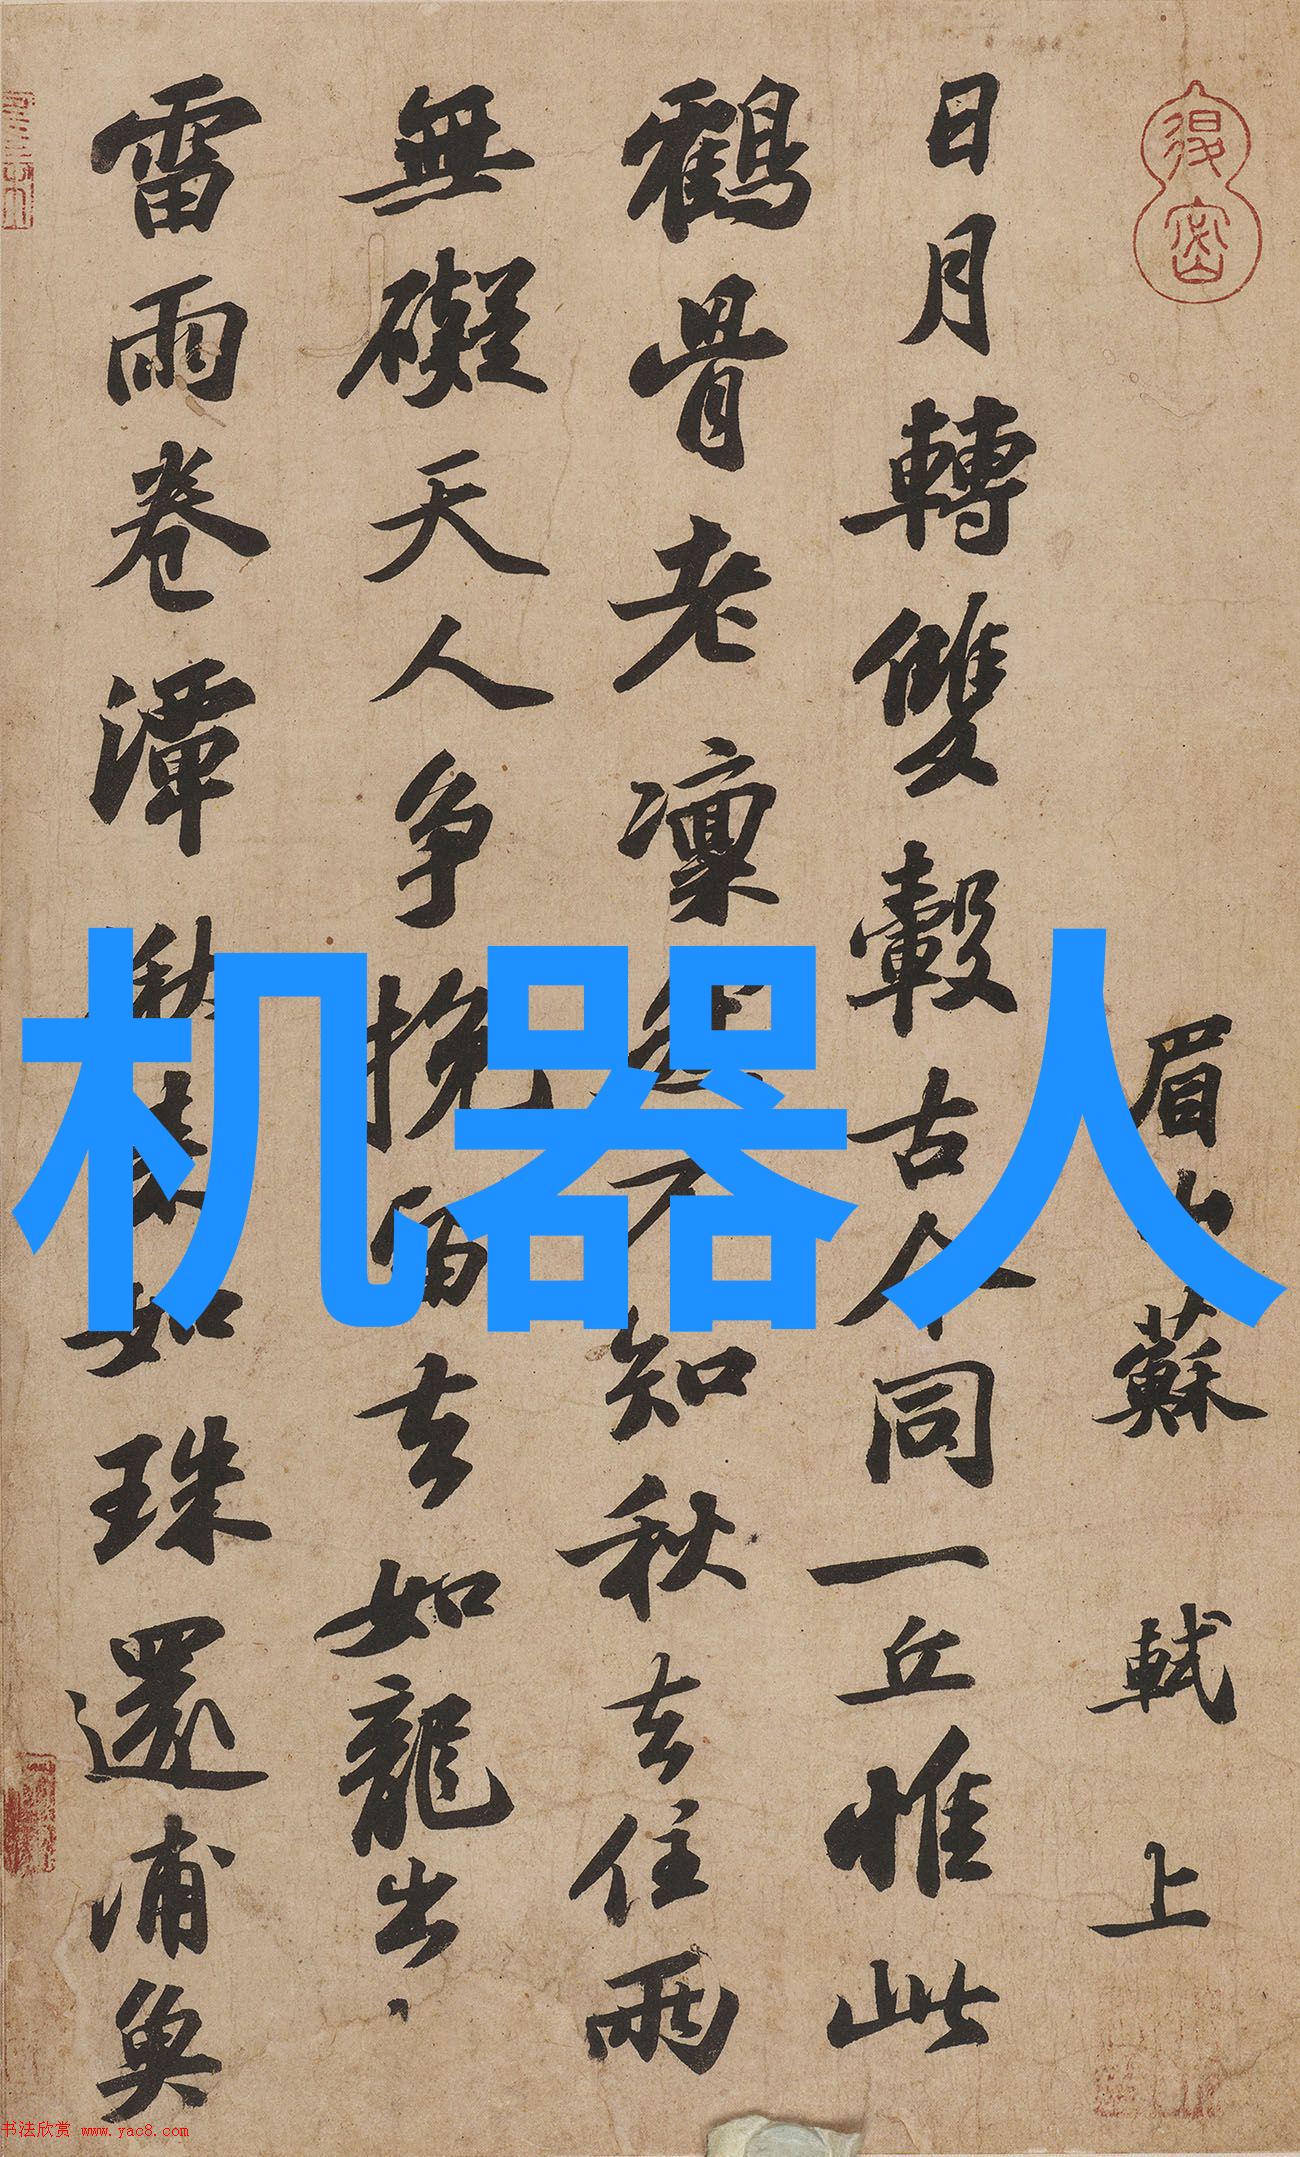 眉山蘇 軾 上
日月轉雙轂古人同一丘惟此
鶴骨老凜然不知秋去住兩
無礙天人争挽留去如龍出
雷雨卷潭湫来如珠還浦魚
机器人
书法欣赏 www.yac8.com